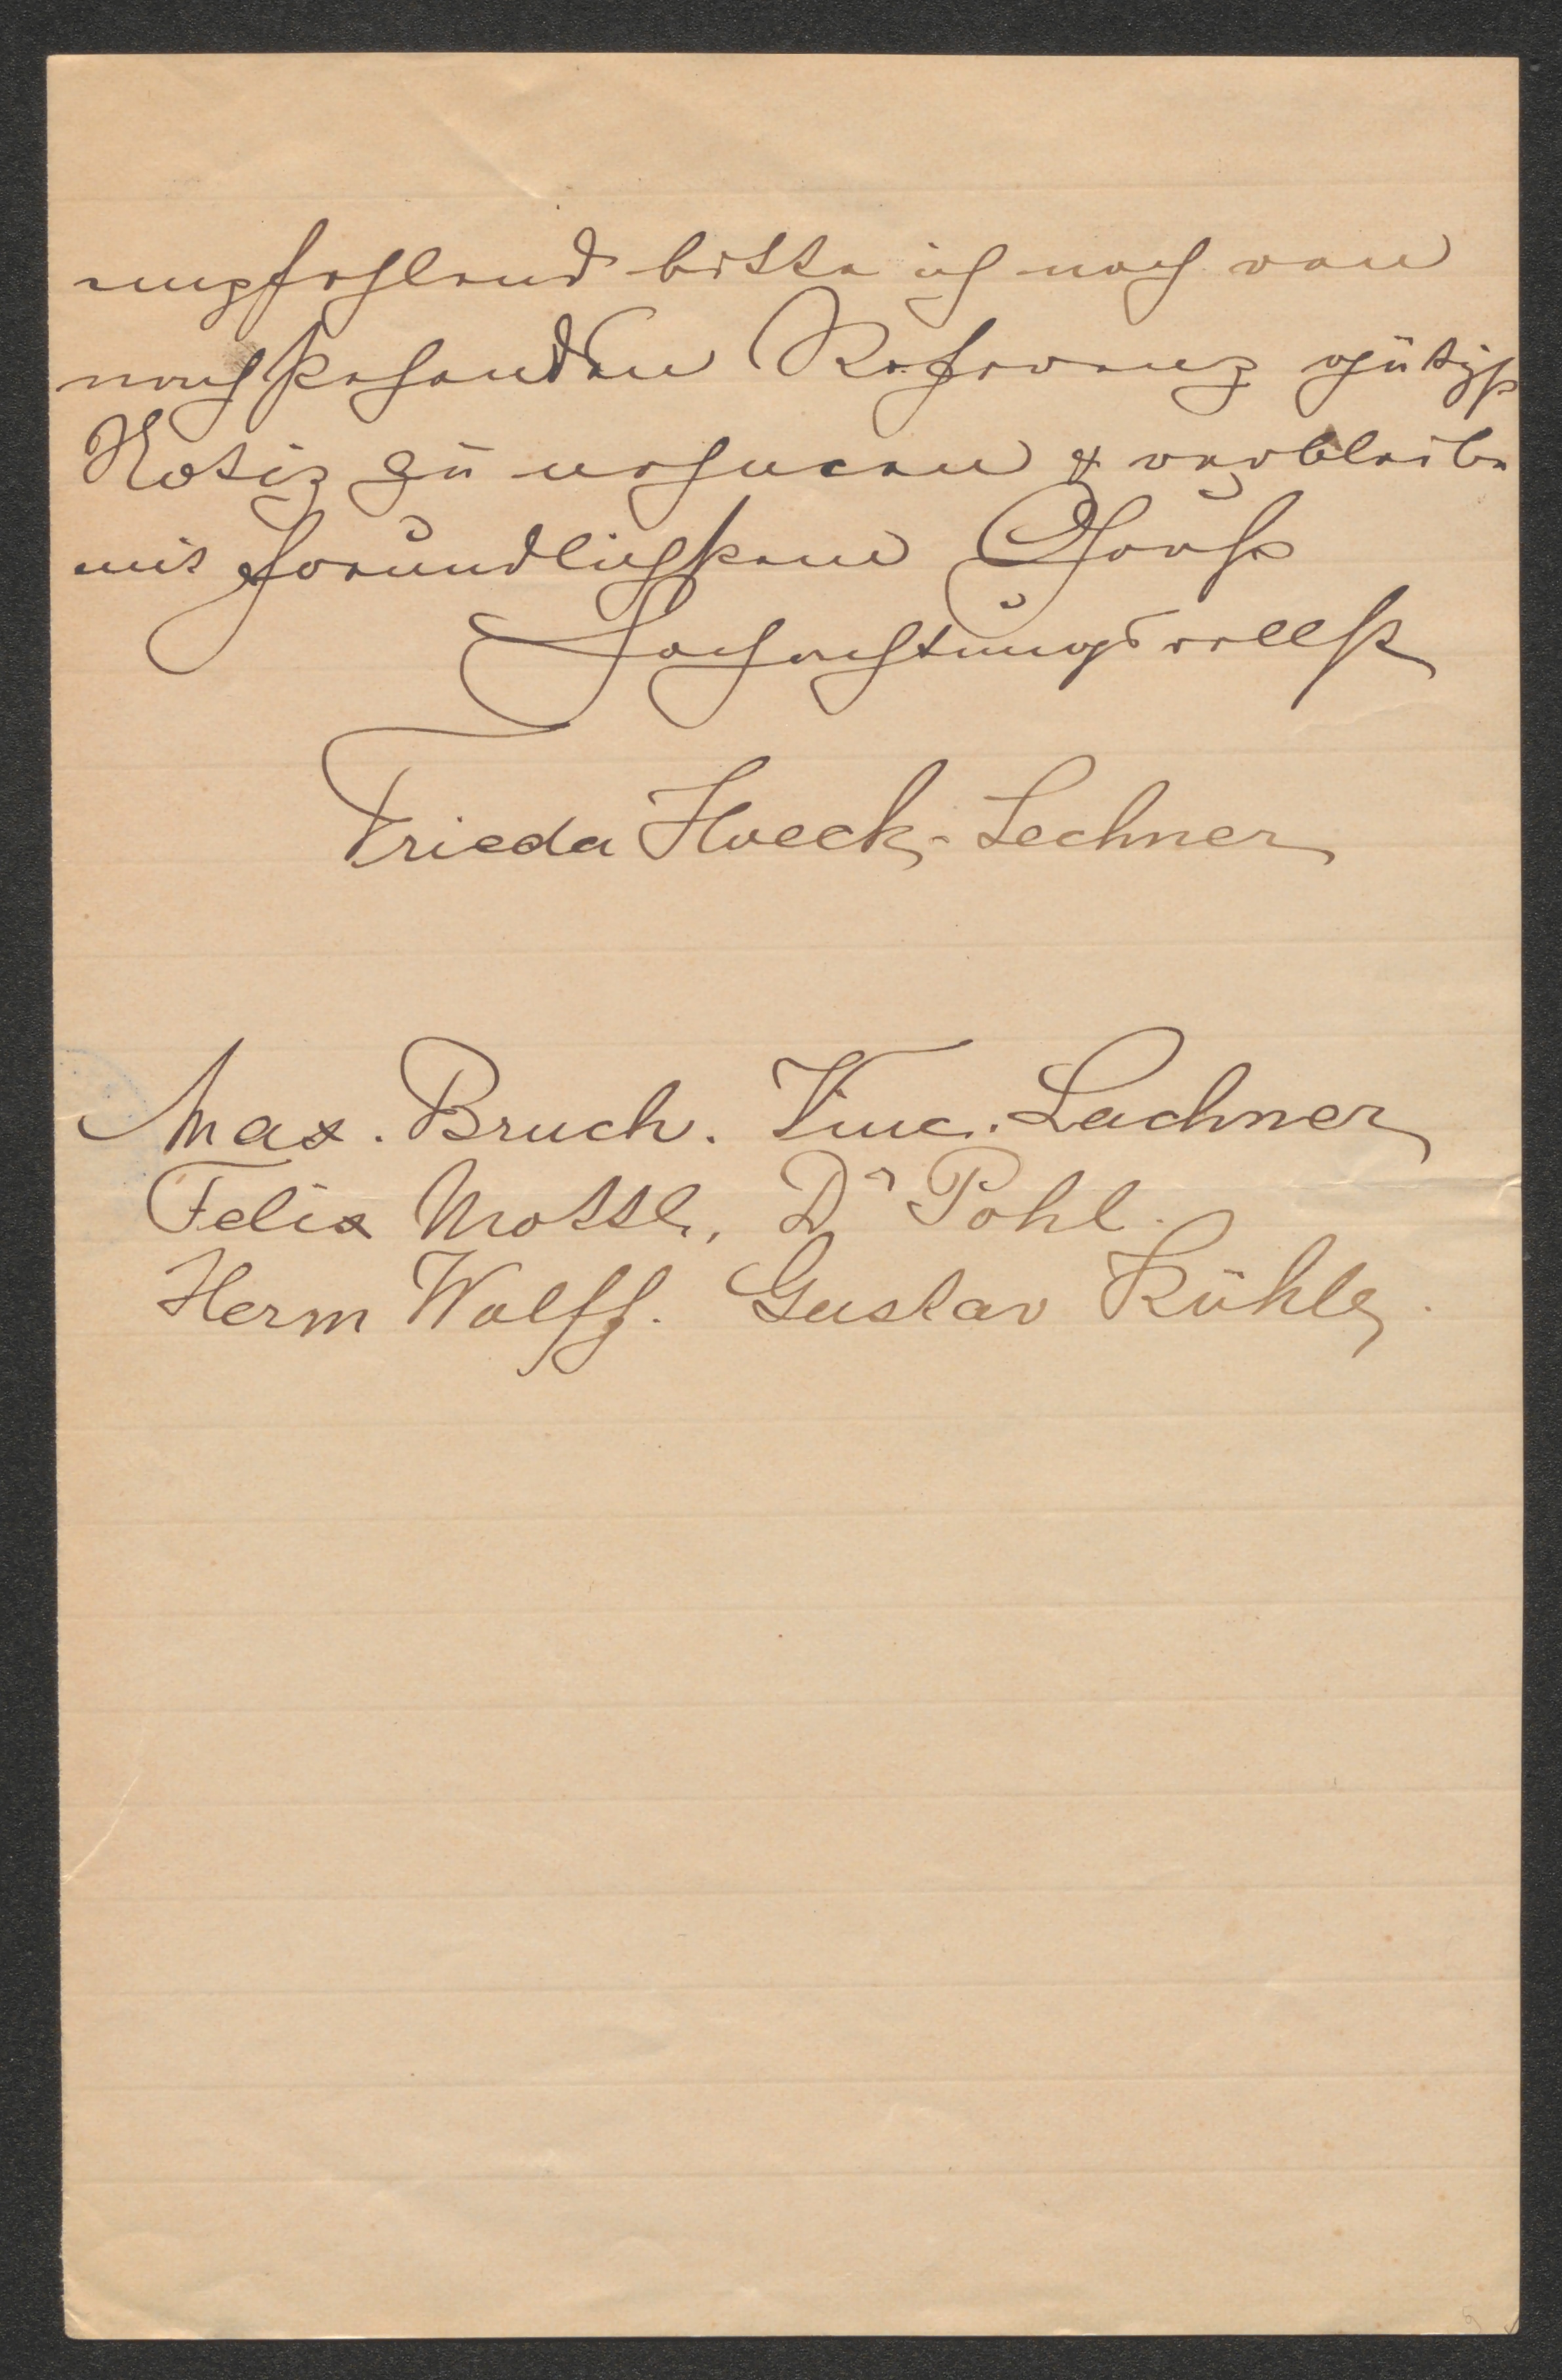 empfehlend bitte ich noch von
nachstehenden Referenz gütigst
Notiz zu nehmen & verbleibe
mit freundlichstem Gruße
Hochachtungsvollst
Frieda Hoeck-Lechner
Max. Bruch. Vinc. Lachner
Felix Mottl, Dr Pohl.
Herm Wolff. Gustav Kühle.